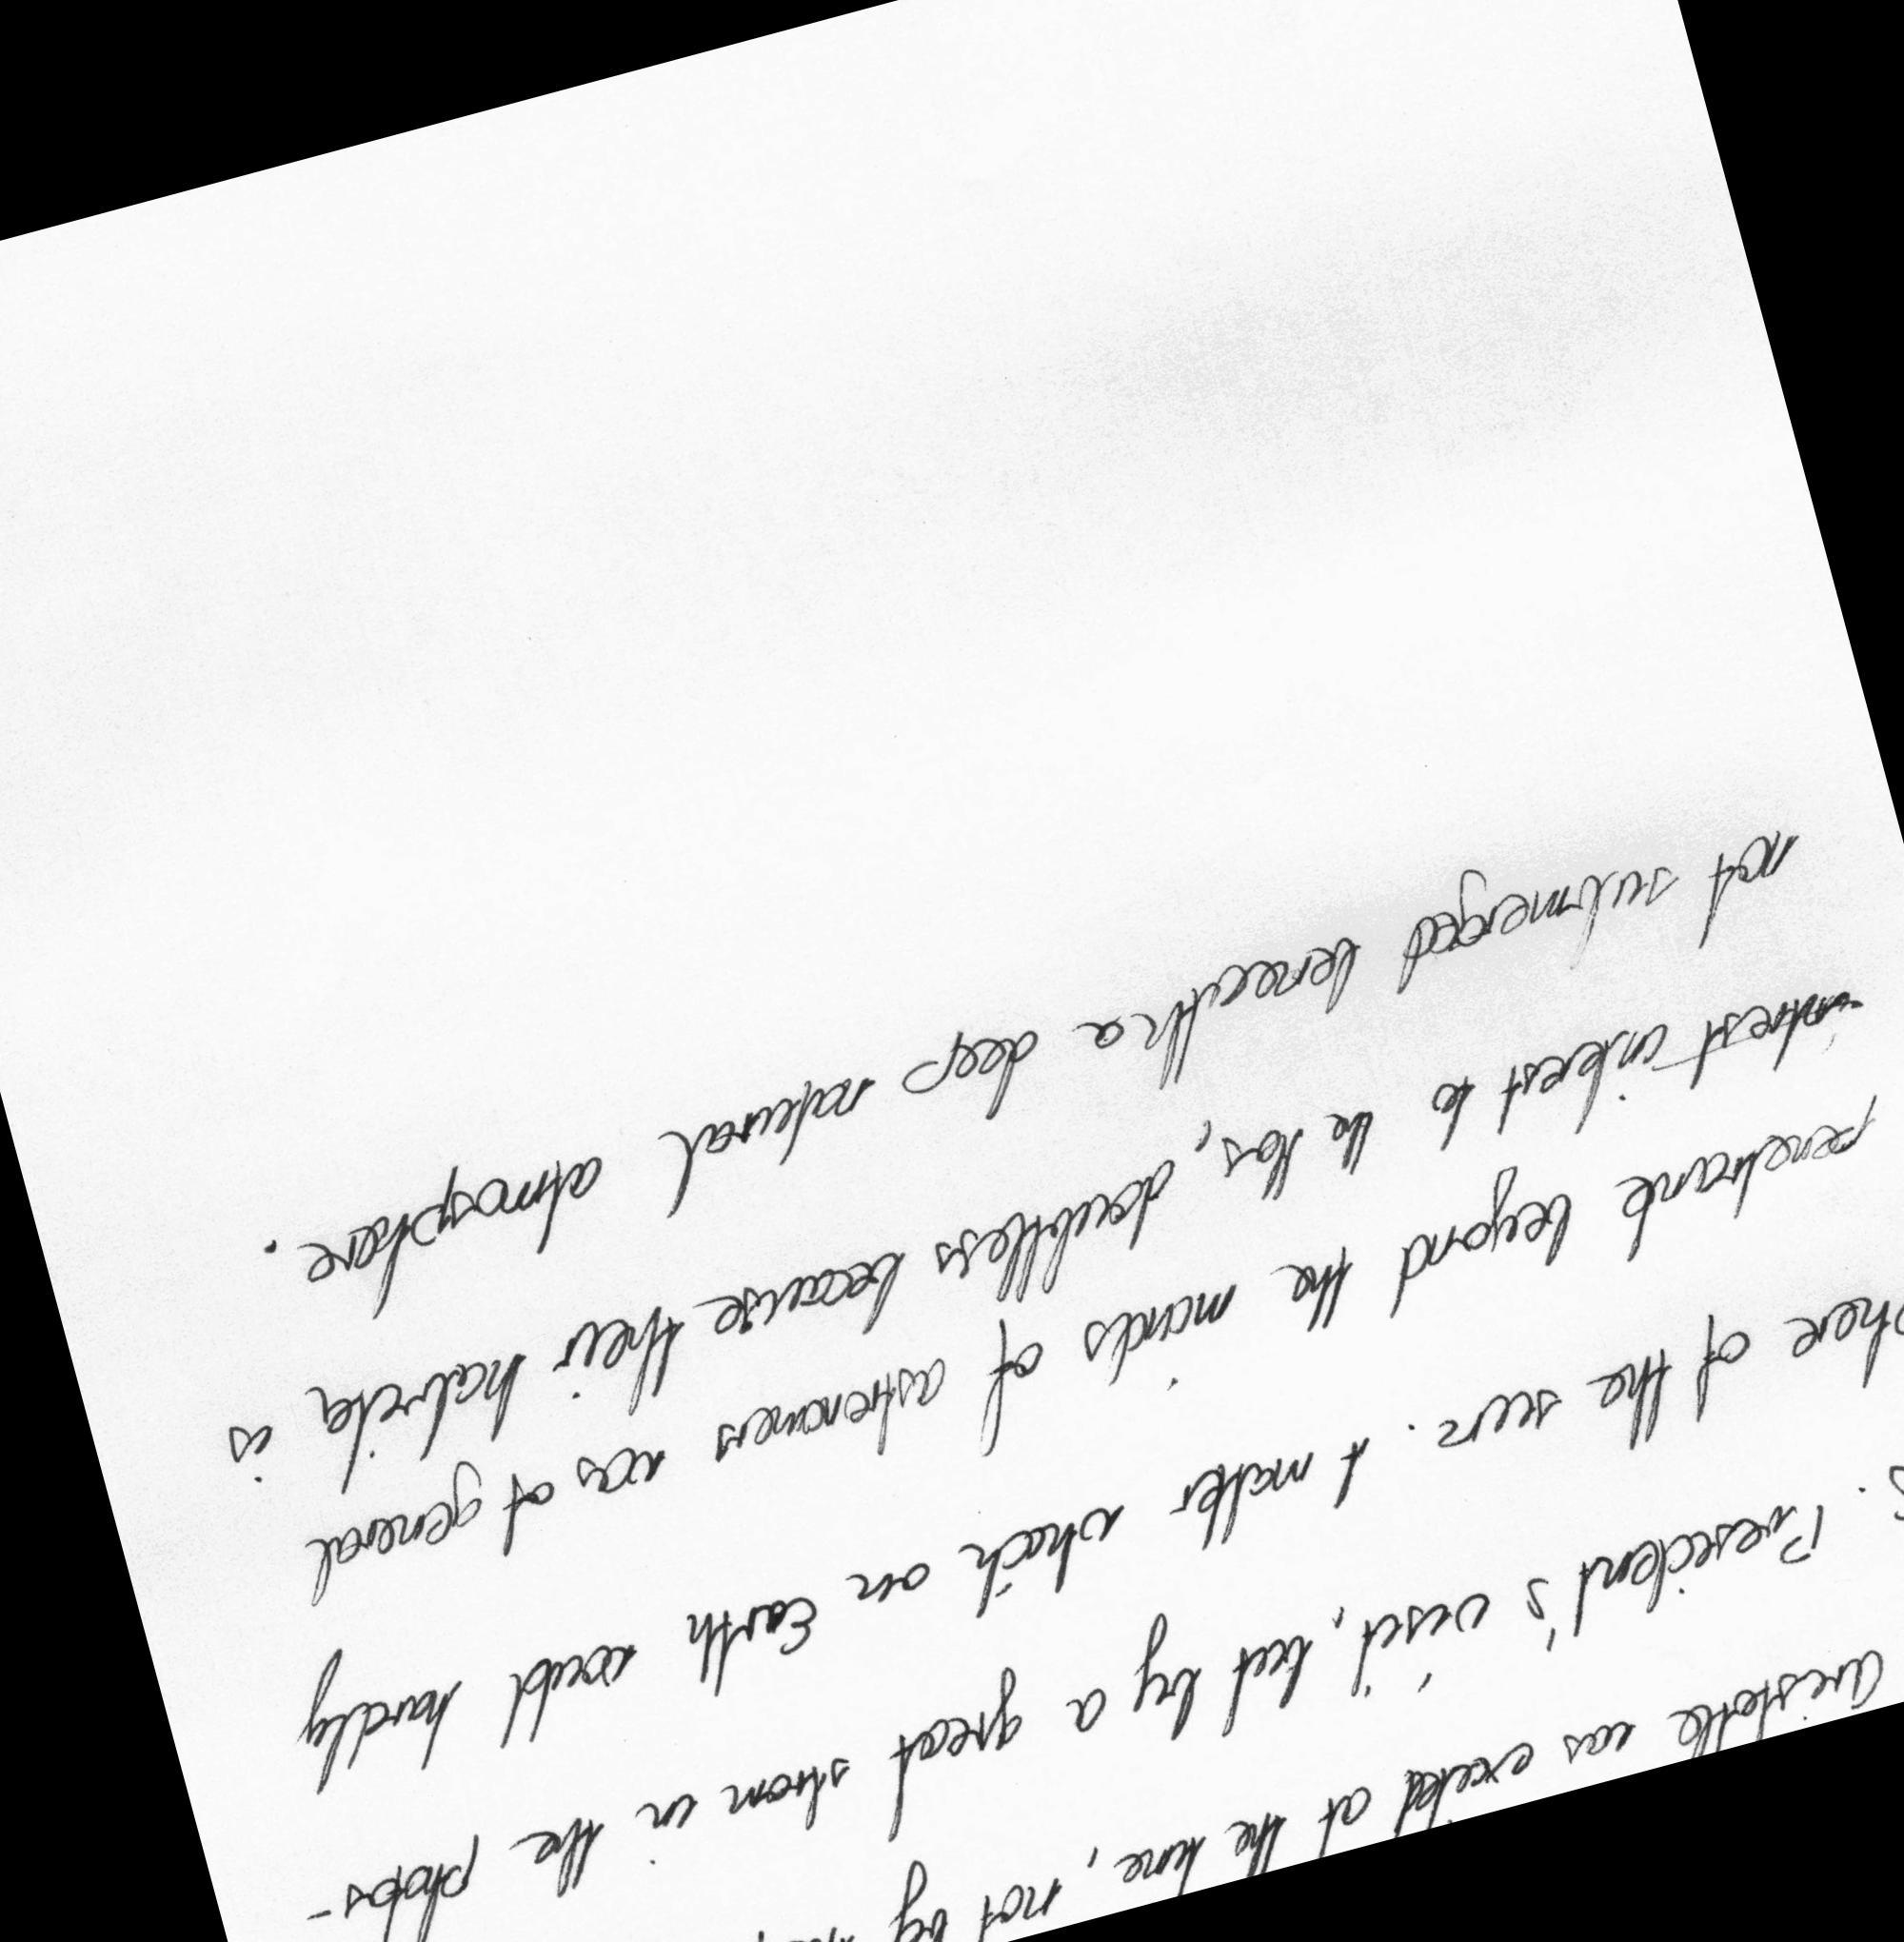 Aristotle was excited at the time, not by
s. President's visit, but by a great strom in the photos-
phere of the seur. A matter which on Earth would hardly
penetrante beyond the minds of astronomers was of general
intrest interest to the Hos, doubtless because their is
not submerged beneath a deep natural atmosphere.